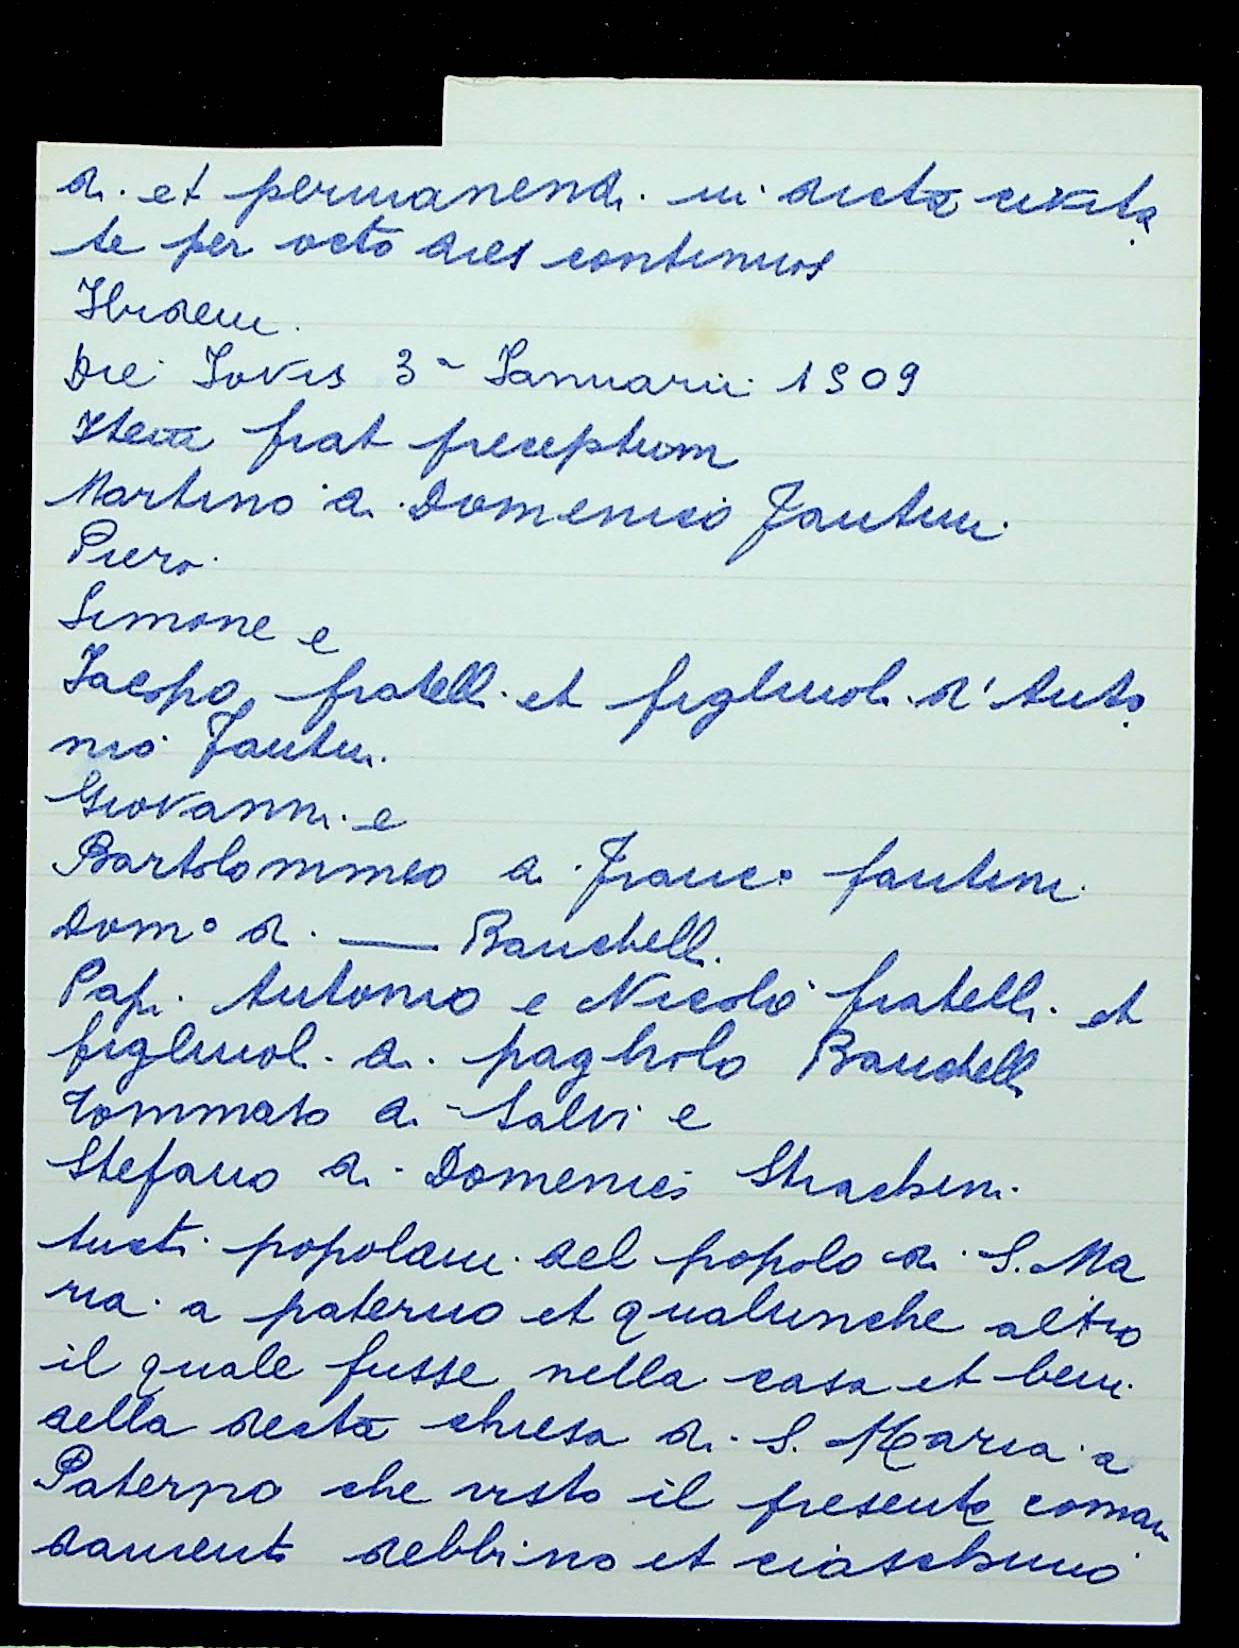 di et permanendi in dicta civita
te per octo dies continuos
Ibidem
Die Jovis 3ª Januarii 1509
Item fiat preceptum
Martino di Domenico Fantini
Piero
Simone e
Jacopo fratelli et figliuoli d'Anto
nio Fantini
Giovanni e
Bartolommeo di Franc° fantini
Dom° di — Banchelli
Papi Antonio e Nicolò fratelli et
figliuoli di pagholo Banchelli
Tommaso di Salvi e
Stefano di Domenico Strachini
tucti popolani del popolo di S. Ma
ria a paterno et qualunche altro
il quale fusse nella casa et beni
della decta chiesa di S. Maria a
Paterno che visto il presente coman
damento debbino et ciaschuno